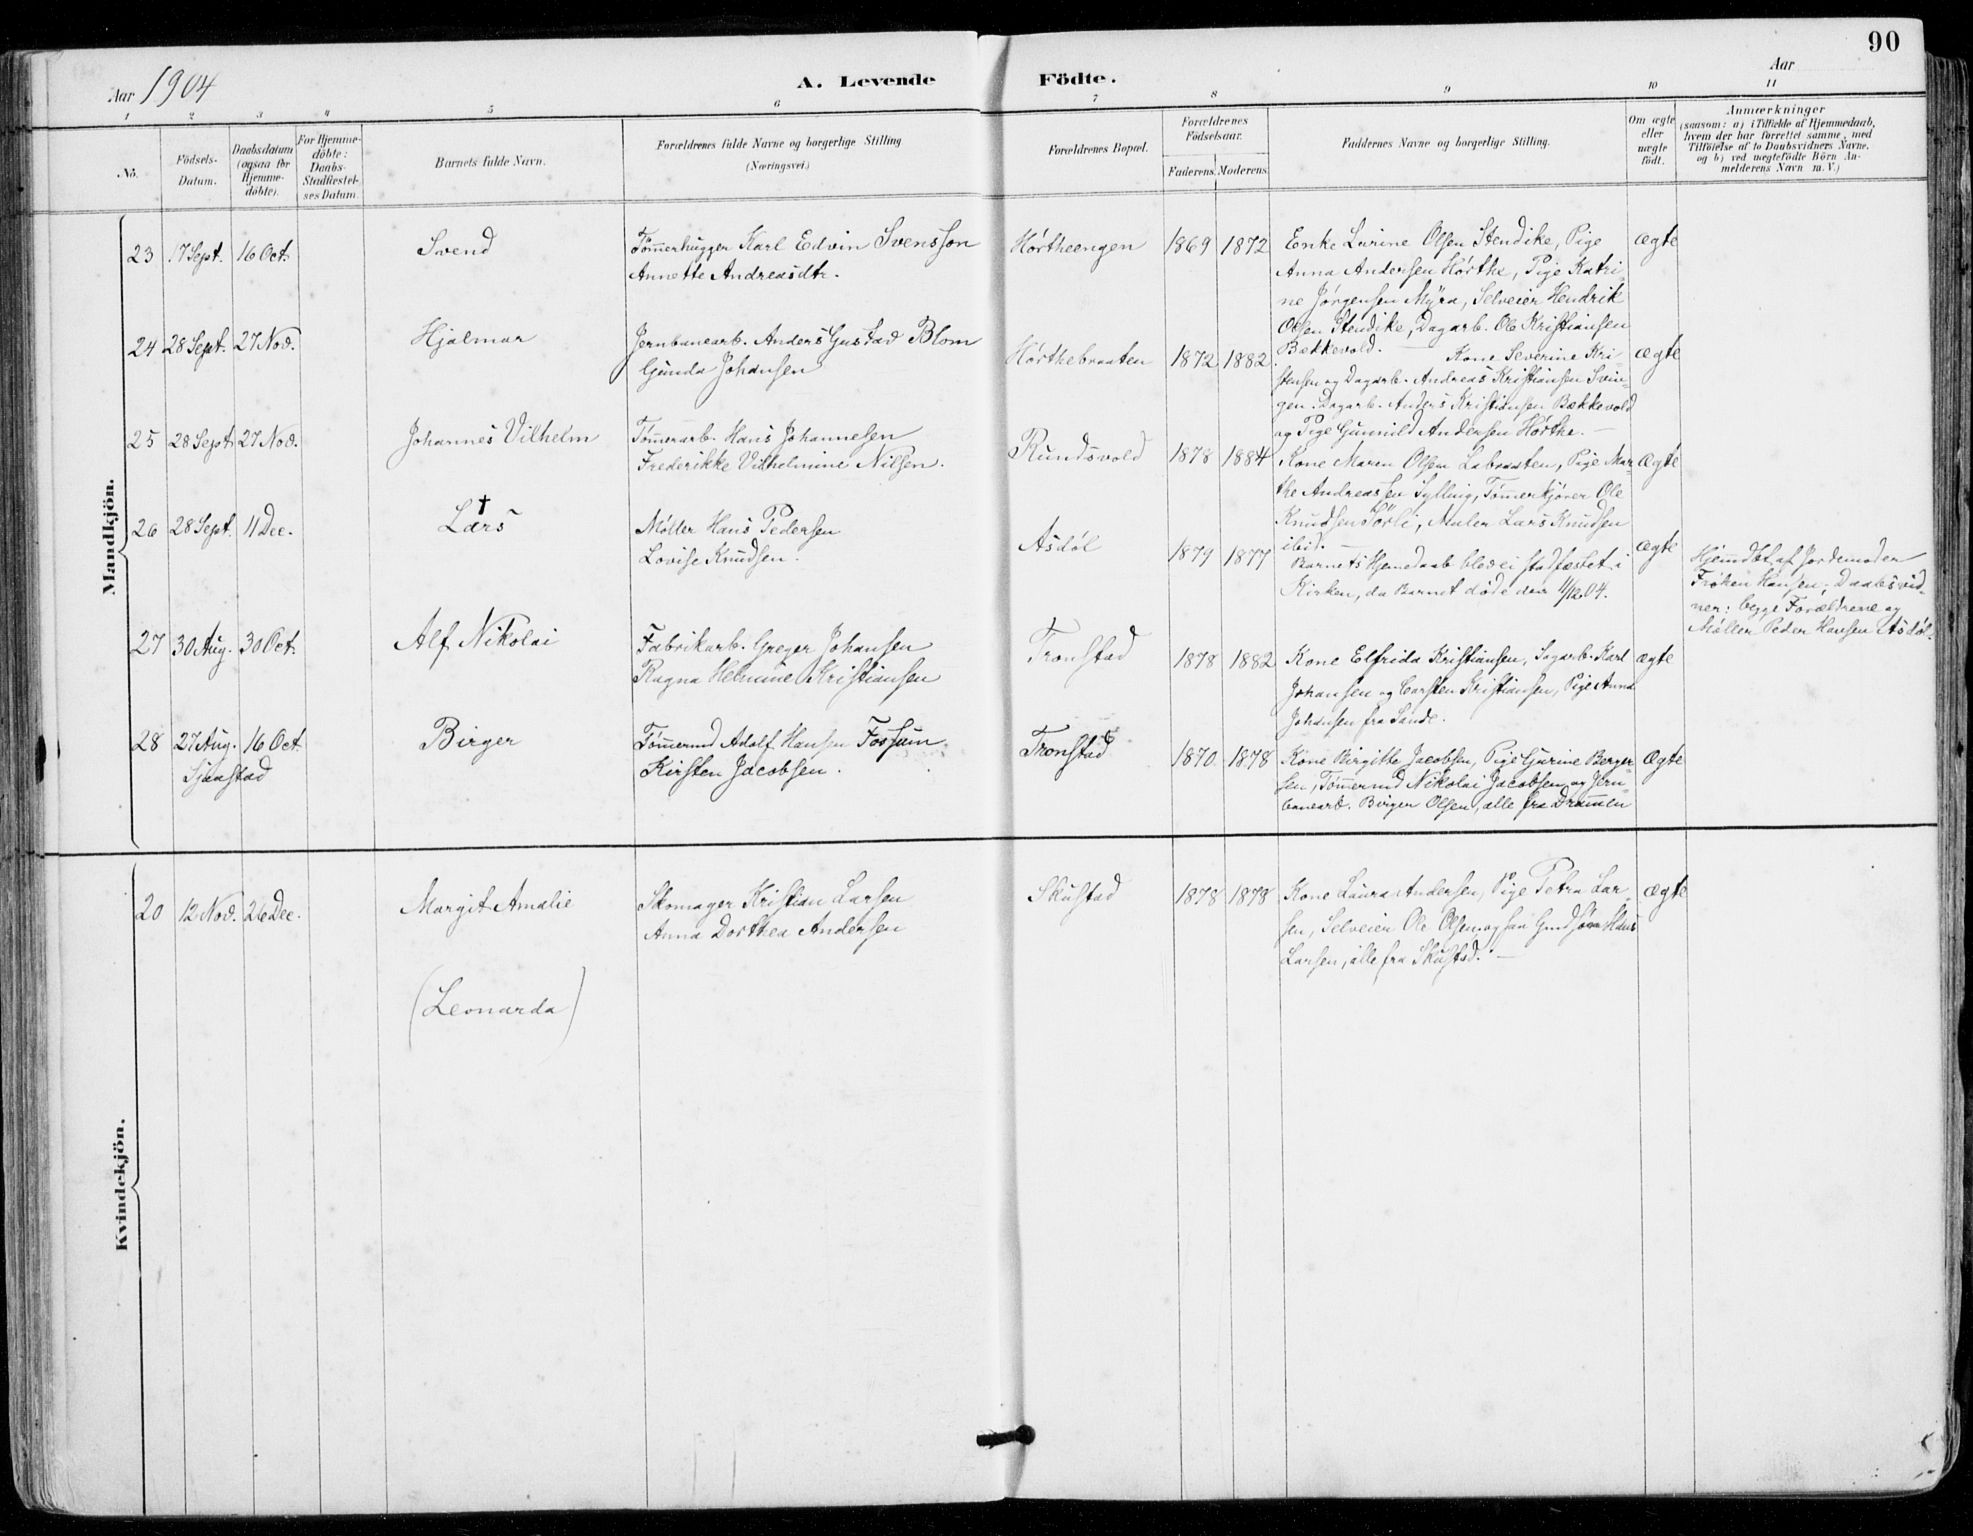 90
Aar 1904
A. Levende Födte.
Aar
1 2 3 4 5 6 7 8 9 10 11
No.
Födsels-
Datum.
Daabsdatum
(ogsaa for
Hjemme-
döbte).
For Hjemme-
döbte:
Daabs-
Stadfæstel-
ses Datum.
Barnets fulde Navn.
Forældrenes fulde Navne og borgerlige Stilling
(Næringsvei.)
Forældrenes Bopæl.
Forældrenes
Födselsaar.
Faderens. Moderens.
Faddernes Navne og borgerlige Stilling.
Om ægte
eller
uægte
födt.
Anmærkninger
(saasom: a) i Tilfælde af Hjemmedaab,
hvem der har forrettet samme, med
Tilföielse af to Daabsvidners Navne.
og b) ved uægtefödte Börn An-
melderens Navn m. V.)
Mandkjön.
23 17 Sept. 16 Oct. Svend
Tømmerhugger Karl Edvin Svensson
Annette Andreasdtr.
Hørtheengen 1869 1872
Enke Lurine Olsen Stendike, Pige
Anna Andersen Hørthe, Pige Katri-
ne Jørgensen Myra, Selveier Hendrik
Olsen Stendike, Dagarb. Ole Kristiansen
Bækkevold.
ægte
24 28 Sept. 27 Nov. Hjalmar
Jernbanearb. Anders Gustad Blom
Gunda Johansen
Hørthebraaten 1872 1882.
Kone Severine Kri
stensen og Dagarb. Andreas Kristiansen Svin-
gen. Dagarb. Anders Kristiansen Bækkevold
og Pige Gunnild Andersen Hørthe. —
ægte
25 28 Sept 27 Nov. Johannes Vilhelm
Tømmerarb. Hans Johannesen
Frederikke Vilhelmine Nilsen.
Rundsvold 1878 1884
Kone Maren Olsen Labraaten, Pige Mar-
the Andreassen Sylling, Tømmerkjører Ole
Knudsen Torli, Maler Lars Knudsen
ibid. —
ægte
26 28 Sept. 11 Dec. Lars †
Møller Hans Pedersen
Lovise Knudsen.
Asdøl 1879 1877
Barnets Hjemedaab blev ei stadfæstet i
Kirken, da Barnet døde den 11/12 04.
ægte
Hjemdbt af Jordemoder
Frøken Hansen; Daabsvid-
ner: begge Forældrene og
Møller Peder Hansen Asdøl.
27 30 Aug. 30 Oct. Alf Nikolai
Fabrikarb. Greger Johansen
Ragna Helmine Kristiansen
Tronstad 1878 1882
Kone Elfrida Kristiansen, Sagarb. Karl
Johansen og Carsten Kristiansen, Pige Anna
Johansen fra Sande.
ægte
28 27 Aug. 16 Oct. Birger
Sjaastad
Tømmermd Adolf Hansen Fossum
Kirsten Jacobsen.
Tronstad 1870 1878
Kone Birgitte Jacobsen, Pige Gurine Berger-
sen, Tømmermd Nikolai Jacobsen og Jern-
banearb. Birger Olsen, alle fra Drammen
Ægte
Kvindekjön.
20 12 Nov. 26 Dec. Margit Amalie
(Leonarda)
Skomager Kristian Larsen
Anna Dorthea Andersen
Skustad 1878 1878
Kone Laura Andersen, Pige Petra Lar-
sen, Selveier Ole Olsen, og Hans
Larsen, alle fra Skustad. —
ægte